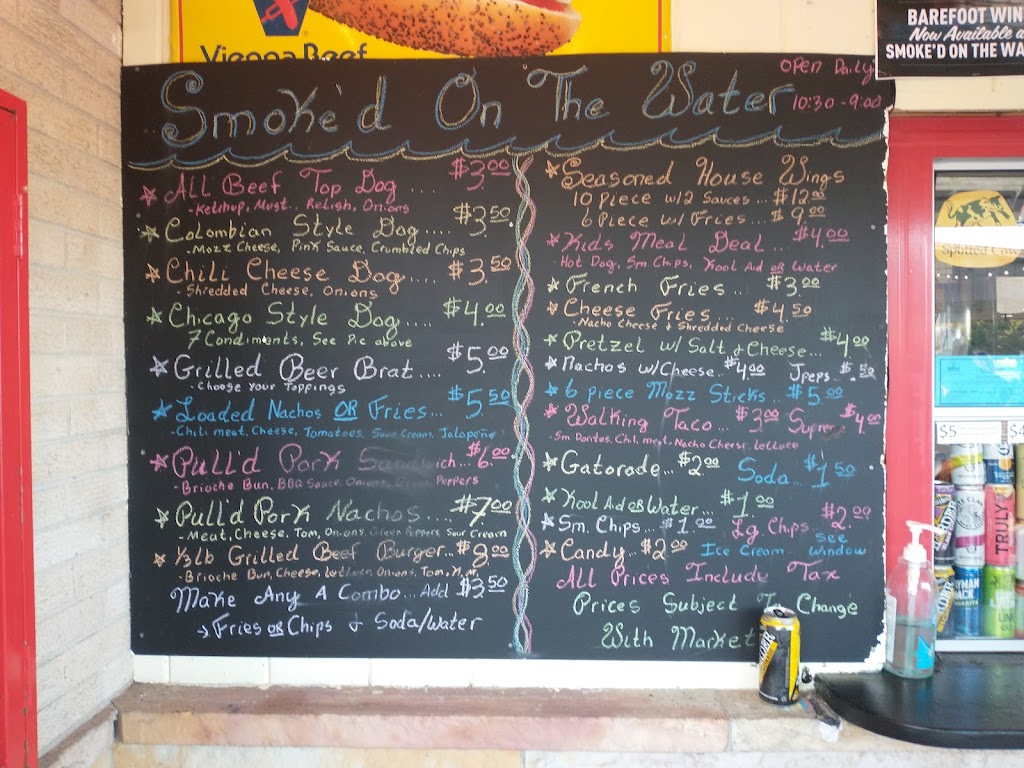 Vienna Beef
BAREFOOT WIN
Now Available a
SMOKE'D ON THE WA
Smoke'd On The Water
OPEN Daily
10:30 - 9:00
All Beef Top Dog .... $3.00
- Ketchup, Must.. Relish, Onions
Colombian Style Dog.... $3.50
- Mozz Cheese, Pink Sauce, Crumbled Chips
Chili Cheese Dog.... $3.50
- Shredded Cheese, Onions
Chicago Style Dog.... $4.00
7 Condiments, See Pic above
Grilled Beer Brat.... $5.00
- Choose your Toppings
Loaded Nachos OR Fries... $5.50
- Chili meat, Cheese, Tomatoes, Sour Cream, Jalapeño
Pull'd Pork Sandwich... $6.00
- Brioche Bun, BBQ Sauce, Onions, Green Peppers
Pull'd Pork Nachos.... $7.00
- Meat, Cheese, Tom, Onions, Green Peppers, Sour Cream
⅓lb Grilled Beef Burger.. $8.00
- Brioche Bun, Cheese, Lettuce, Onions, Tom,
Make Any A Combo... Add $3.50
→ Fries OR Chips & Soda/Water
Seasoned House Wings
10 piece w/2 Sauces... $12.00
6 Piece w/ Fries... $9.00
Kids Meal Deal... $4.00
Hot Dog, Sm Chips, Kool Aid OR Water
French Fries... $3.00
Cheese Fries... $4.50
- Nacho Cheese & Shredded Cheese
Pretzel w/ Salt & Cheese... $4.00
Nachos w/Cheese.. $4.00 Jpeps.. $.50
6 piece Mozz Sticks... $5.00
Walking Taco... $3.00 Supreme $4.00
- Sm Doritos, Chil. meat, Nacho Cheese, Lettuce
Gatorade... $2.00 Soda... $1.50
Kool Aid OR Water... $1.00
Sm Chips... $1.00 Lg Chips... $2.00
Candy... $2.00 Ice Cream... See Window
All Prices Include Tax
Prices Subject To Change
With Market
$5
$4
TRULY